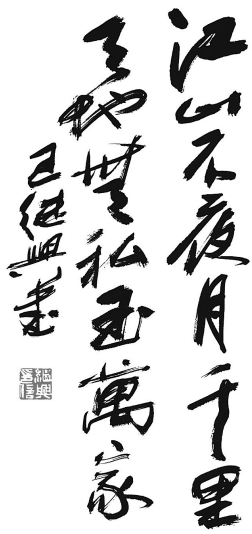 江山不夜月千里
天地無私玉萬家
王继興書